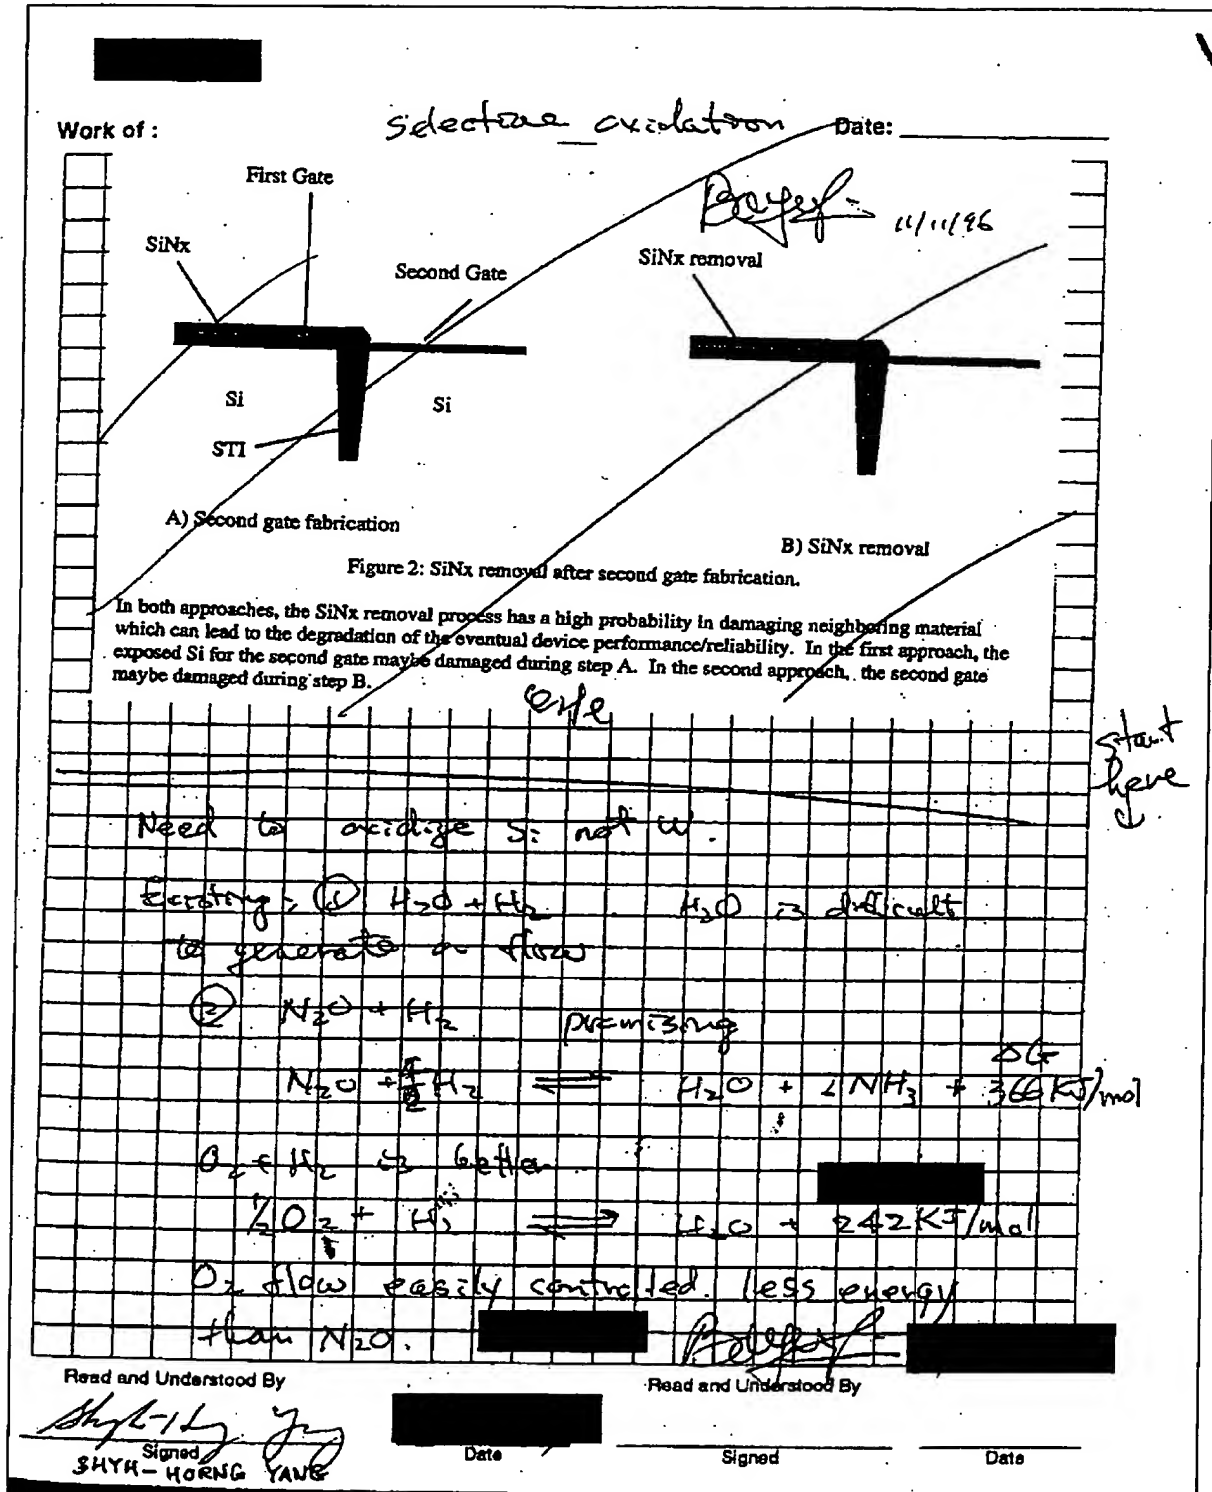 Work of : selective oxidation Date:
11/11/96
First Gate
SiNx
Second Gate
SiNx removal
Si
Si
STI
A) Second gate fabrication
B) SiNx removal
Figure 2: SiNx removal after second gate fabrication.
In both approaches, the SiNx removal process has a high probability in damaging neighboring material
which can lead to the degradation of the eventual device performance/reliability. In the first approach, the
exposed Si for the second gate maybe damaged during step A. In the second approach, the second gate
maybe damaged during step B.
start
here
Need to oxidize Si not W.
Existing, ① H2O + H2 H2O is difficult
to generate a flow
② N2O + H2 promising
ΔG
N2O + H2 ⇌ H2O + 2NH3 + 366 KJ/mol
O2 + H2 is better
1/2O2 + H2 ⇌ H2O + 242 KJ/mol
O2 flow easily controlled. less energy
than N2O.
Read and Understood By Read and Understood By
Signed Date Signed Date
SHYH-HORNG YANG